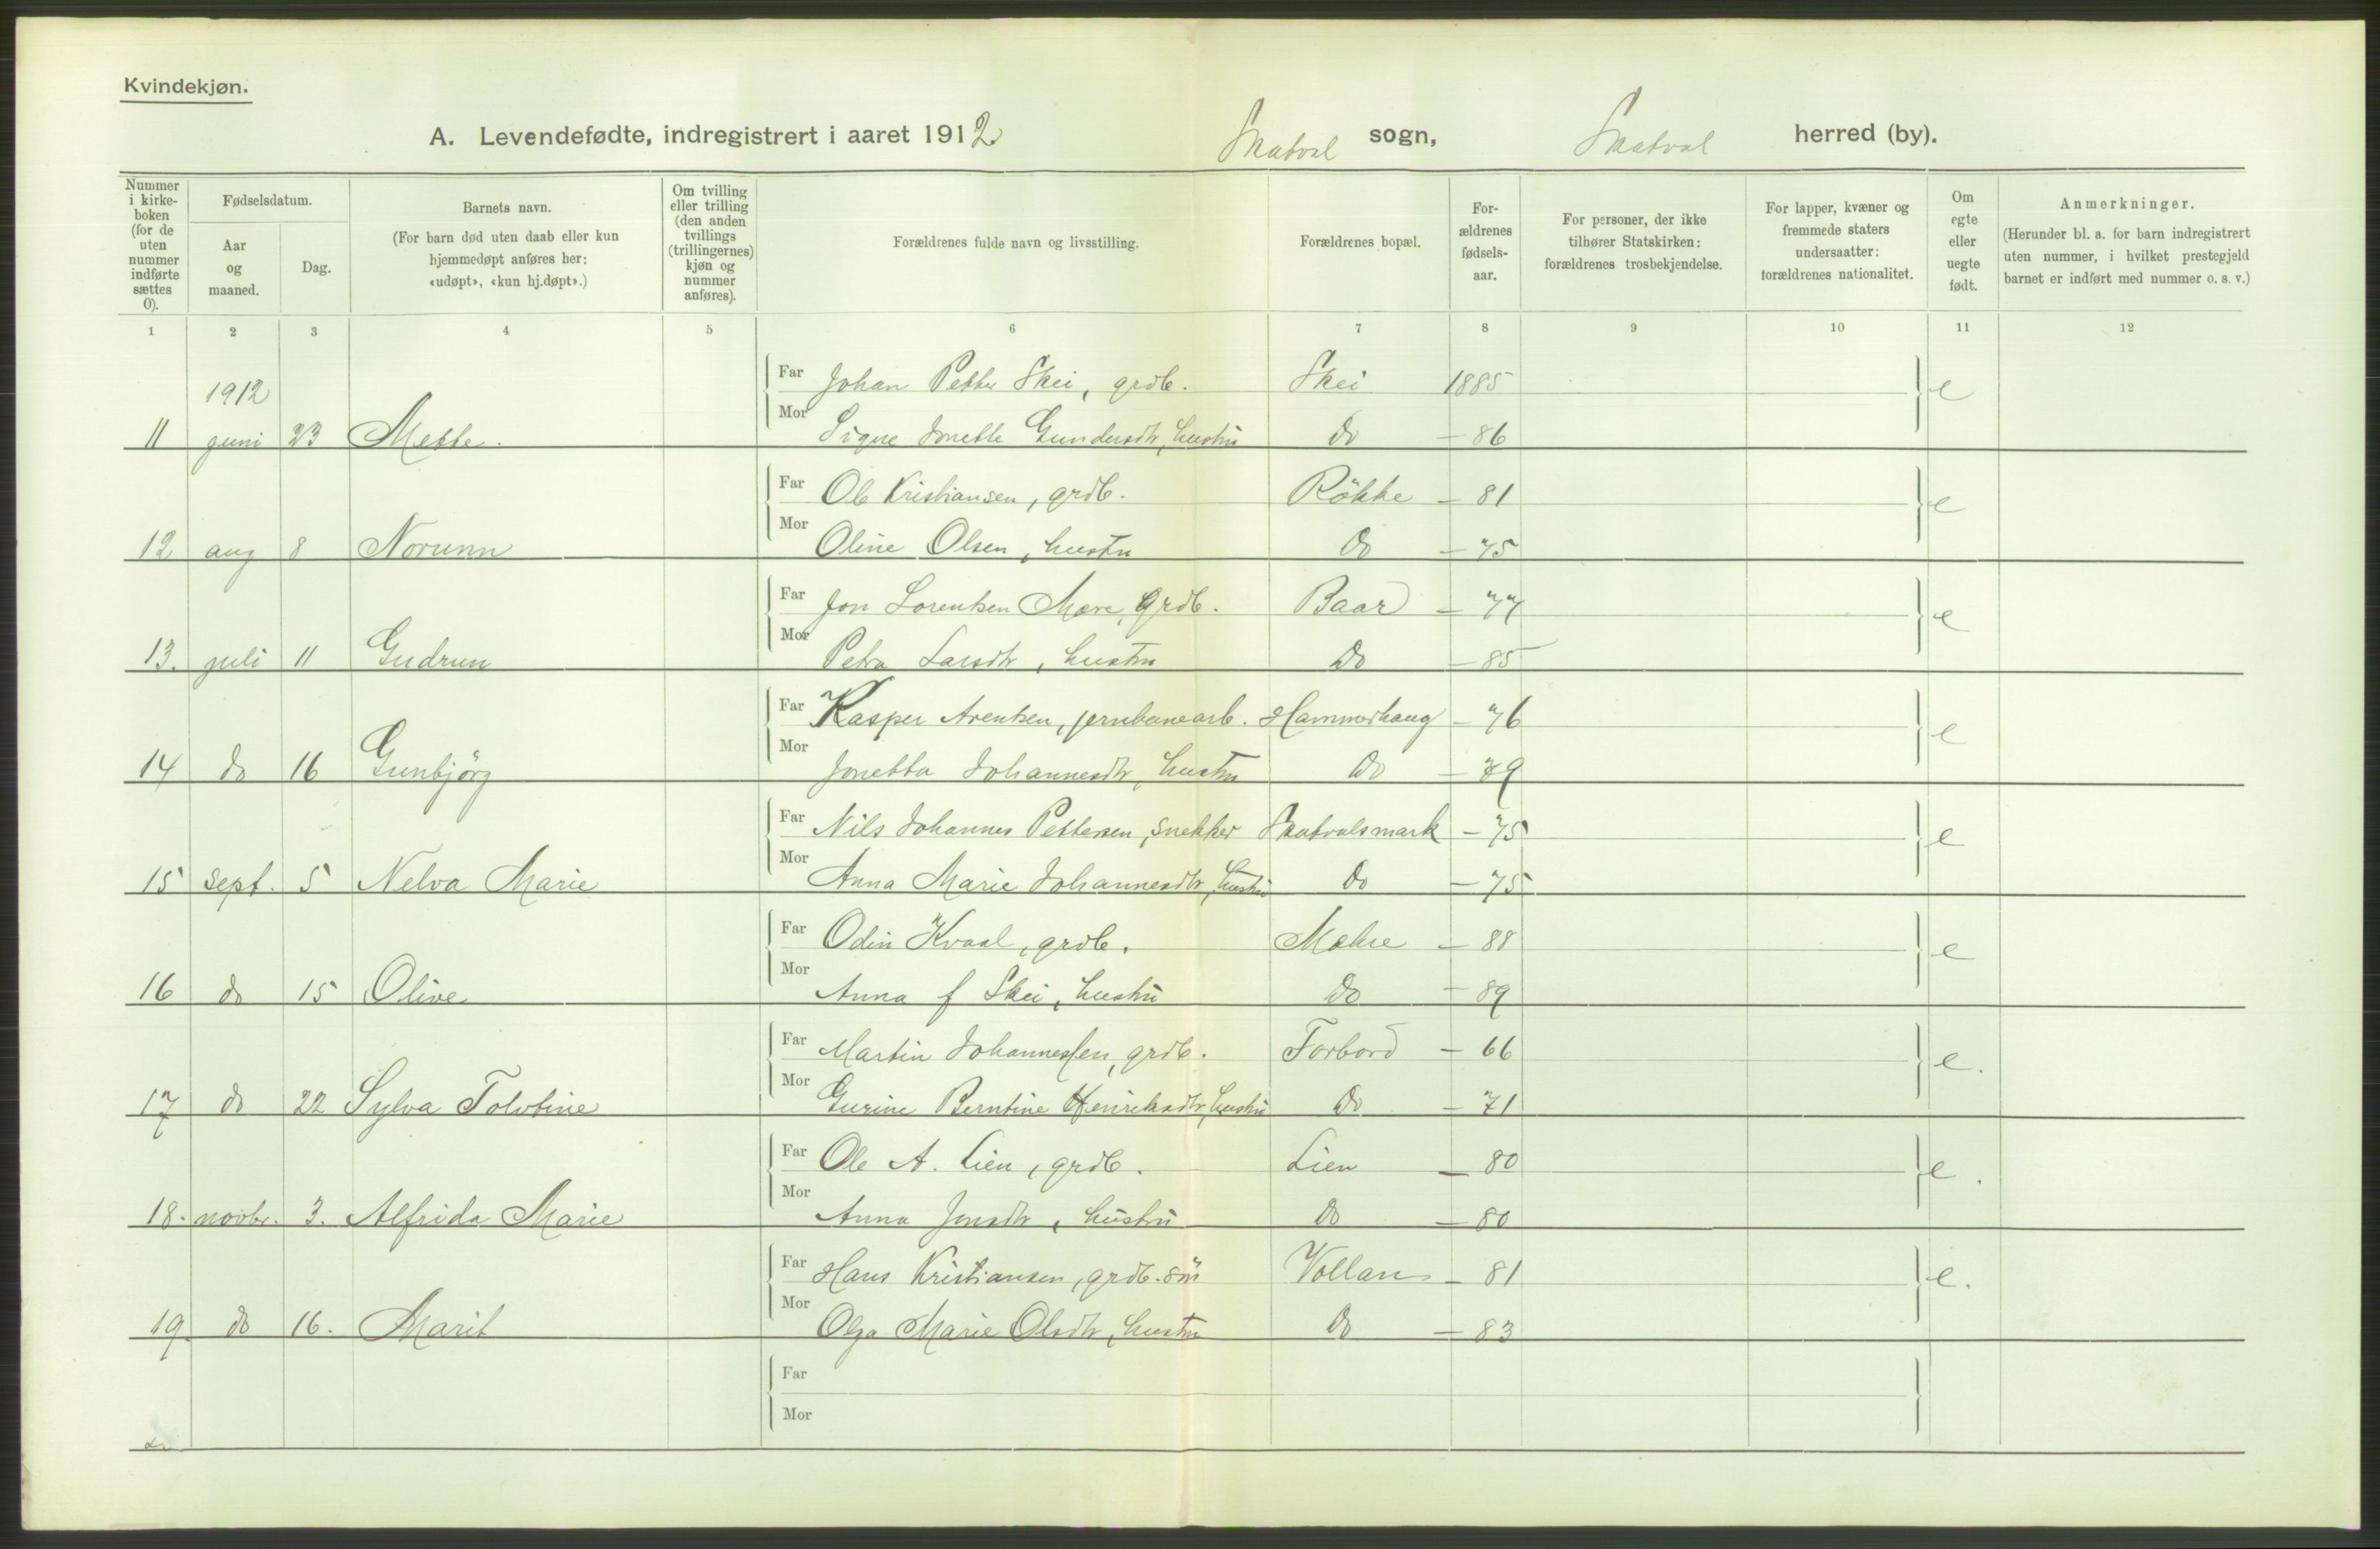 Kvindekjøn.
A. Levendefødte, indregistrert i aaret 1912. Skatval sogn, Skatval herred (by).
Nummer i kirkeboken (for de uten nummer indførte sættes 0).
Fødselsdatum.
Aar og maaned.
Dag.
Barnets navn.
(For barn død uten daab eller kun hjemmedøpt anføres her: «udøpt», «kun hj.døpt».)
Om tvilling eller trilling (den anden tvillings (trillingernes) kjøn og nummer anføres).
Forældrenes fulde navn og livsstilling.
Forældrenes bopæl.
Forældrenes fødselsaar.
For personer, der ikke tilhører Statskirken: forældrenes trosbekjendelse.
For lapper, kvæner og fremmede staters undersaatter: forældrenes nationalitet.
Om egte eller uegte født.
Anmerkninger.
(Herunder bl. a. for barn indregistrert uten nummer, i hvilket prestegjeld barnet er indført med nummer o. s. v.)
1 2 3 4 5 6 7 8 9 10 11 12
1912 Far Johan Petter Skei, grdb. Skei 1885 e
11 juni 23 Mette. Mor Signe Jonette Gundersdtr, hustru Do – 86
Far Ole Kristiansen, grdb. Rökke – 81 e
12 aug 8 Norunn Mor Oline Olsen, hustru Do – 75
Far Jon Lorentsen Mære, grdb. Baar – 77 e
13. juli 11 Gudrun Mor Petra Larsdtr, hustru Do – 85
Far Kasper Arentsen, jernbanearb. Hammerhaug – 76 e
14 do 16 Gunbjörg Mor Jonetta Johannesdtr, hustru Do – 79
Far Nils Johannes Pettersen, snekker Skatvalsmark – 75 e
15 sept. 5 Nelva Marie Mor Anna Marie Johannesdtr, hustru Do – 75
Far Odin Kvaal, grdb. Mæhre – 88 e
16 do 15 Olive Mor Anna f Skei, hustru Do – 89
Far Martin Johannessen, grdb. Forbord – 66 e.
17 do 22 Sylva Tolvtine Mor Gurine Berntine Henriksdtr, hustru Do – 71
Far Ole A. Lien, grdb. Lien – 80 e.
18. novbr. 3. Alfrida Marie Mor Anna Jonsdtr, hustru Do – 80
Far Hans Kristiansen, grdb. sön Vollan – 81 e.
19. do 16. Marit Mor Olga Marie Olsdtr, hustru Do – 83
Far
Mor